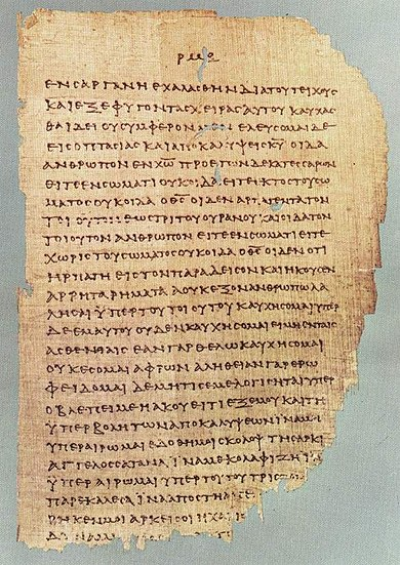 ΕΝϹΑΡΓΑΝΗΕΧΑΛΑϹΘΗΝΔΙΑΤΟΥΤΕΙΧΟΥϹ
ΚΑΙΕΞΕΦΥΓΟΝΤΑϹΧΕΙΡΑϹΑΥΤΟΥΚΑΥΧΑϹ
ΘΑΙΔΕΙΟΥϹΥΜΦΕΡΟΝΜΕΝΕΛΕΥϹΟΜΑΙΔΕ
ΕΙϹΟΠΤΑϹΙΑϹΚΑΙΑΠΟΚΑΛΥΨΕΙϹΚ̅Υ̅ΟΙΔΑ
ΑΝΘΡΩΠΟΝΕΝΧ̅Ω̅ΠΡΟΕΤΩΝΔΕΚΑΤΕϹϹΑΡΩΝ
ΕΙΤΕΕΝϹΩΜΑΤΙΟΥΚΟΙΔΑΕΙΤΕΕΚΤΟϹΤΟΥϹΩ
ΜΑΤΟϹΟΥΚΟΙΔΑΟΘ̅Ϲ̅ΟΙΔΕΝΑΡΠΑΓΕΝΤΑΤΟΝ
ΤΟΙΟΥΤΟΝΕΩϹΤΡΙΤΟΥΟΥΡΑΝΟΥΚΑΙΟΙΔΑΤΟΝ
ΤΟΙΟΥΤΟΝΑΝΘΡΩΠΟΝΕΙΤΕΕΝϹΩΜΑΤΙΕΙΤΕ
ΧΩΡΙϹΤΟΥϹΩΜΑΤΟϹΟΥΚΟΙΔΑΟΘ̅Ϲ̅ΟΙΔΕΝΟΤΙ
ΗΡΠΑΓΗΕΙϹΤΟΝΠΑΡΑΔΕΙϹΟΝΚΑΙΗΚΟΥϹΕΝ
ΑΡΡΗΤΑΡΗΜΑΤΑΑΟΥΚΕΞΟΝΑΝΘΡΩΠΩΛΑ
ΛΗϹΑΙΫΠΕΡΤΟΥΤΟΙΟΥΤΟΥΚΑΥΧΗϹΟΜΑΙΥΠΕΡ
ΔΕΕΜΑΥΤΟΥΟΥΔΕΝΚΑΥΧΗϹΟΜΑΙΕΙΜΗΕΝΤΑΙϹ
ΑϹΘΕΝΕΙΑΙϹΕΑΝΓΑΡΘΕΛΩΚΑΥΧΗϹΟΜΑΙ
ΟΥΚΕϹΟΜΑΙΑΦΡΩΝΑΛΗΘΕΙΑΝΓΑΡΕΡΩ
ΦΕΙΔΟΜΑΙΔΕΜΗΤΙϹΕΜΕΛΟΓΙϹΗΤΑΙΥΠΕΡ
ΟΒΛΕΠΕΙΜΕΗΑΚΟΥΕΙΤΙΕΞΕΜΟΥΚΑΙΤΗ
ΫΠΕΡΒΟΛΗΤΩΝΑΠΟΚΑΛΥΨΕΩΝΙΝΑΜΗ
ΥΠΕΡΑΙΡΩΜΑΙΕΔΟΘΗΜΟΙϹΚΟΛΟΨΤΗϹΑΡΚΙ
ΑΓΓΕΛΟϹϹΑΤΑΝΑΪΝΑΜΕΚΟΛΑΦΙΖΗΙ
ΫΠΕΡΑΙΡΩΜΑΙΥΠΕΡΤΟΥΤΟΥΤΡΙϹ
ΠΑΡΕΚΑΛΕϹΑΙΝΑΑΠΟϹΤΗ
ΡΗΚΕΝΜΟΙΑΡΚΕΙϹΟΙΗΧΑΡΙϹ